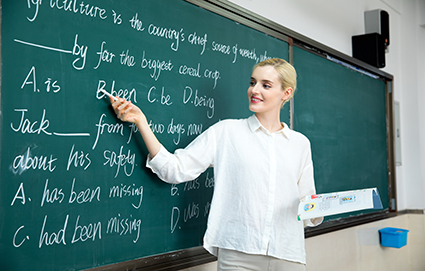 Agriculture is the country's chief source of wealth,
____ by far the biggest cereal crop.
A. is B. been C. be D. being
Jack ____ from for two days now
about his safety
A. has been missing B. had
C. had been missing D.